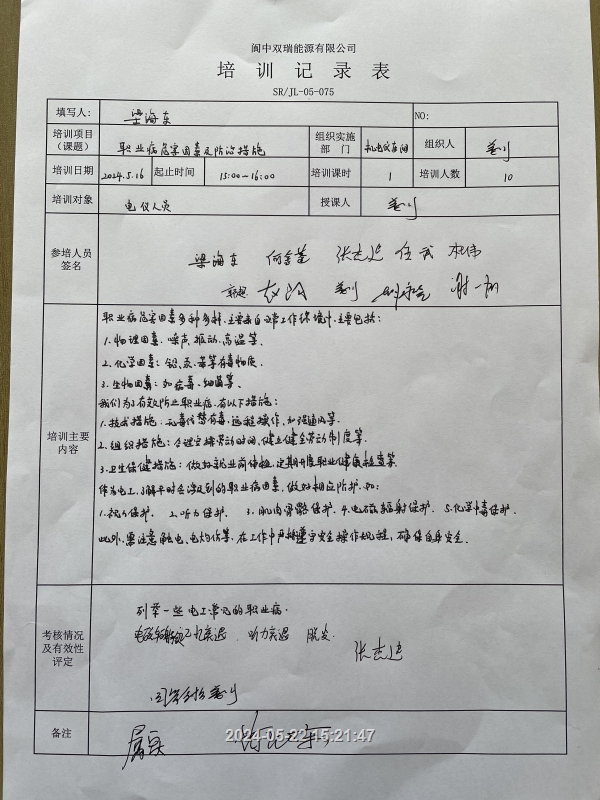 阆中双瑞能源有限公司
培训记录表
SR/JL-05-075
填写人： 梁海东 NO:
培训项目（课题） 职业病危害因素及防治措施 组织实施部门 机电仪车间 组织人
培训日期 2024.5.16 起止时间 15:00-16:00 培训课时 1 培训人数 10
培训对象 电仪人员 授课人
参培人员签名
梁海东 张志廷 任武 杜伟
培训主要内容
职业病危害因素多种多样，主要来自日常工作环境中，主要包括：
1.物理因素：噪声、振动、高温等。
2.化学因素：铅、汞、苯等有毒物质。
3.生物因素：如病毒、细菌等。
我们为了有效防止职业病，有以下措施：
1.技术措施：无毒代替有毒，远程操作，加强通风等。
2.组织措施：合理安排劳动时间，建立健全劳动制度等。
3.卫生保健措施：做好就业前体检，定期开展职业健康检查等。
作为电工，了解平时会涉及到的职业病因素，做好相应防护，如：
1.视力保护。 2.听力保护。 3.肌肉骨骼保护。4.电磁辐射保护。5.化学中毒保护。
此外，需注意触电、电灼伤等，在工作中严格遵守安全操作规程，确保自身安全。
考核情况及有效性评定
列举一些电工常见的职业病。
记忆衰退，听力衰退 脱发
备注
2024-05-22 15:21:47